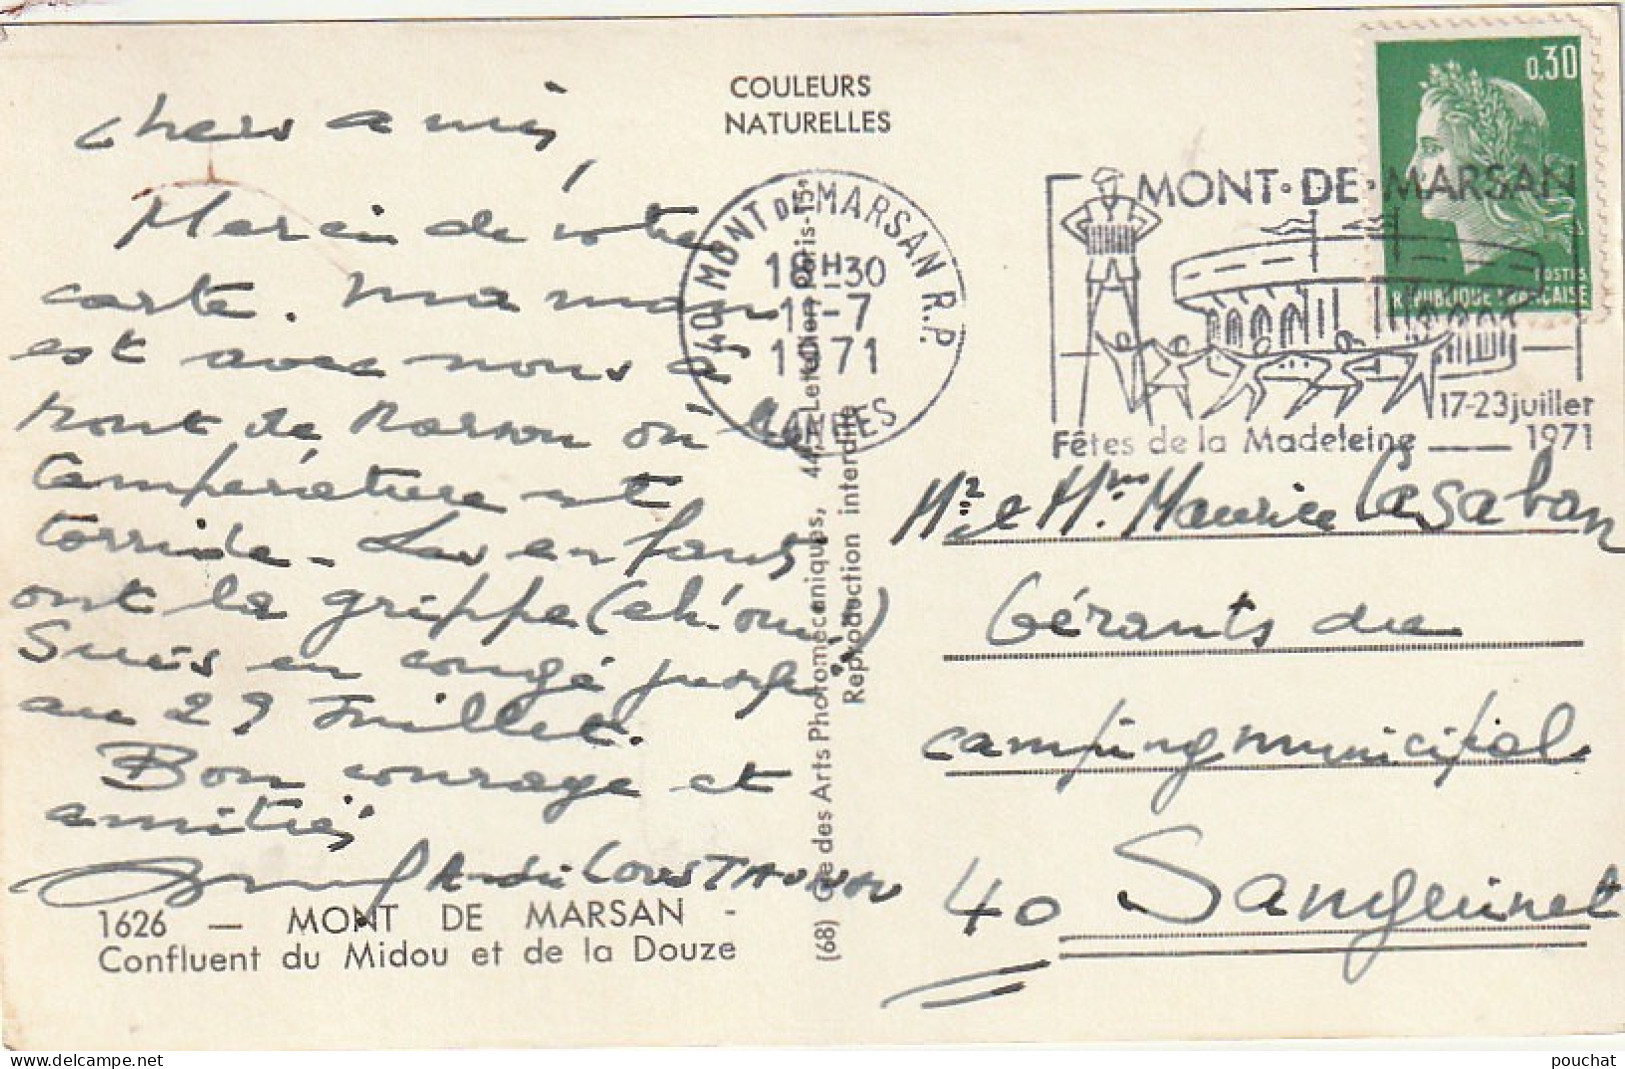 COULEURS
NATURELLES
chers amis,
Merci de votre
carte. Maman
est avec nous à
Mont de Marsan où la
température est
torride - Les enfants
ont la grippe (eh! oui!)
Suis en congé jusqu'
au 29 Juillet.
Bon courage et
amitiés
André
1626 — MONT DE MARSAN -
Confluent du Midou et de la Douze
40 MONT DE MARSAN R.P.
18H30
11-7
1971
LANDES
MONT·DE·MARSAN
17-23 juillet
Fêtes de la Madeleine — 1971
0,30
POSTES
REPUBLIQUE FRANÇAISE
(68) Cie des Arts Photomécaniques, 44, Letellier, Paris-15e
Reproduction interdite
Mr et Mme Maurice Casaban
Gérants du
camping municipal
40 Sanguinet
www.delcampe.net
pouchat